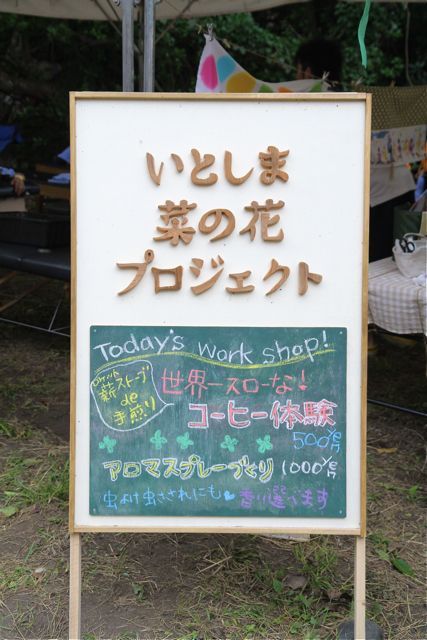 いとしま
菜の花
プロジェクト
Today's work shop!
ロケット
薪ストーブ
de
手煎り
世界一スローな!
コーヒー体験
500円
アロマスプレーづくり 1000円
虫よけ虫さされにも♥香り選べます